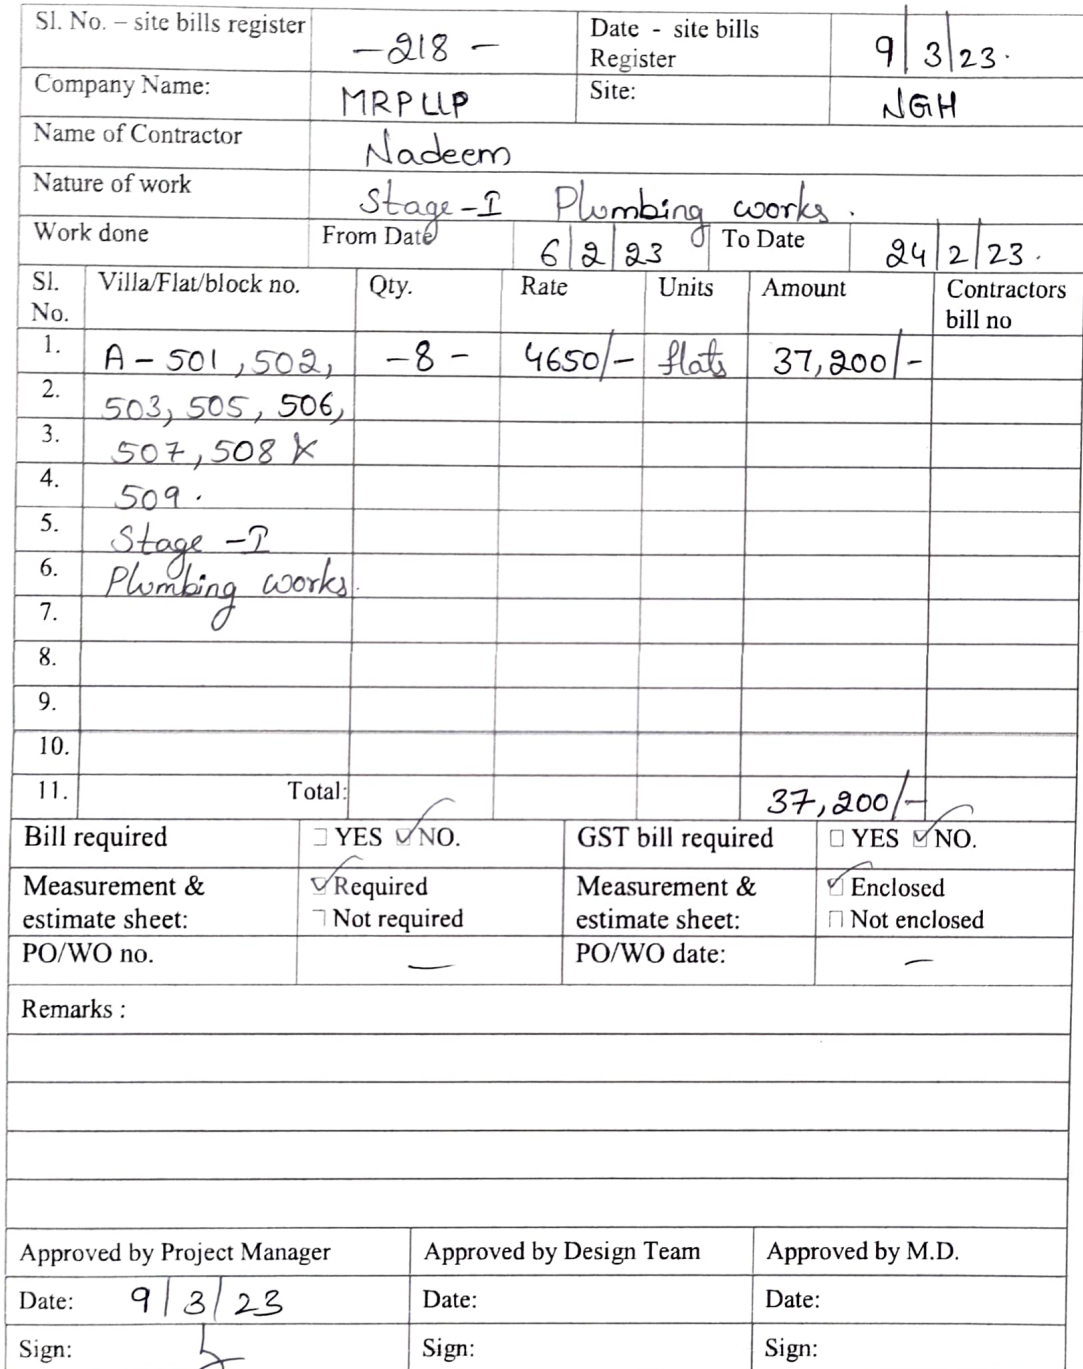 Sl. No. – site bills register -218 - Date - site bills Register 9/3/23.
Company Name: MRPLLP Site: NGH
Name of Contractor Nadeem
Nature of work Stage-I Plumbing works.
Work done From Date 6/2/23 To Date 24/2/23.
Sl. No. Villa/Flat/block no. Qty. Rate Units Amount Contractors bill no
1. A - 501, 502, -8- 4650/- flats 37,200/-
2. 503, 505, 506,
3. 507, 508 &
4. 509.
5. Stage -I
6. Plumbing works.
7.
8.
9.
10.
11. Total: 37,200/-
Bill required ☐ YES ☑ NO. GST bill required ☐ YES ☑ NO.
Measurement & estimate sheet: ☑ Required ☐ Not required Measurement & estimate sheet: ☑ Enclosed ☐ Not enclosed
PO/WO no. — PO/WO date: —
Remarks :
Approved by Project Manager Approved by Design Team Approved by M.D.
Date: 9/3/23 Date: Date:
Sign: Sign: Sign: